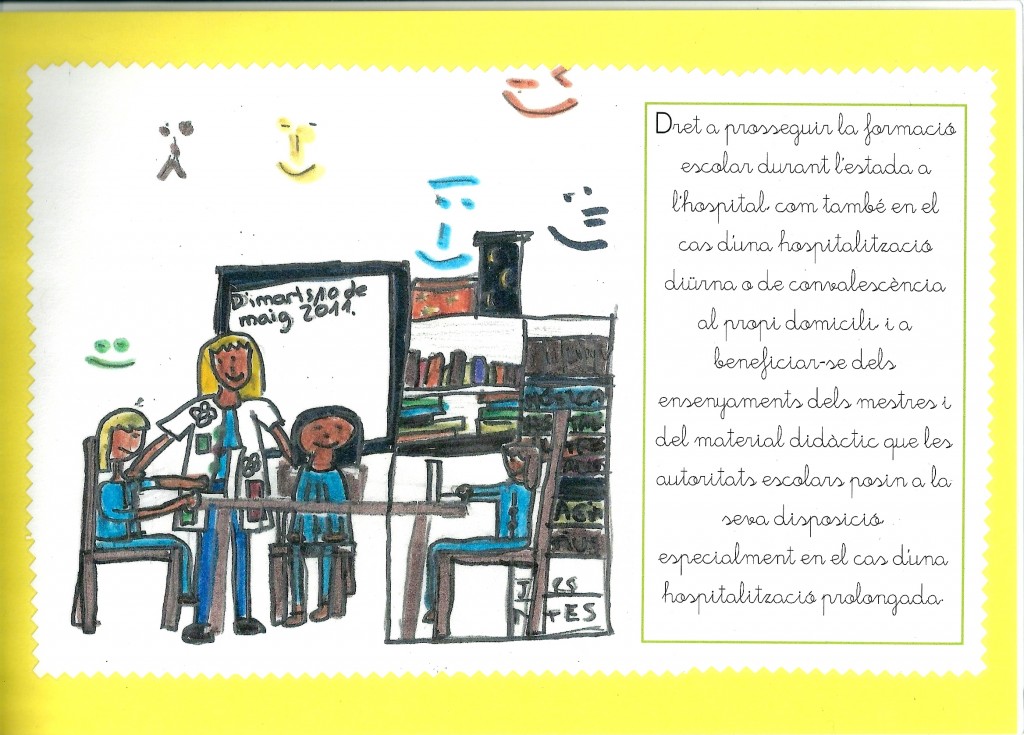 Dimarts/10 de
maig 2011.
MÚSICA
Dret a prosseguir la formació
escolar durant l'estada a
l'hospital, com també en el
cas d'una hospitalització
diürna o de convalescència
al propi domicili, i a
beneficiar-se dels
ensenyaments dels mestres i
del material didàctic que les
autoritats escolars posin a la
seva disposició
especialment en el cas d'una
hospitalització prolongada.